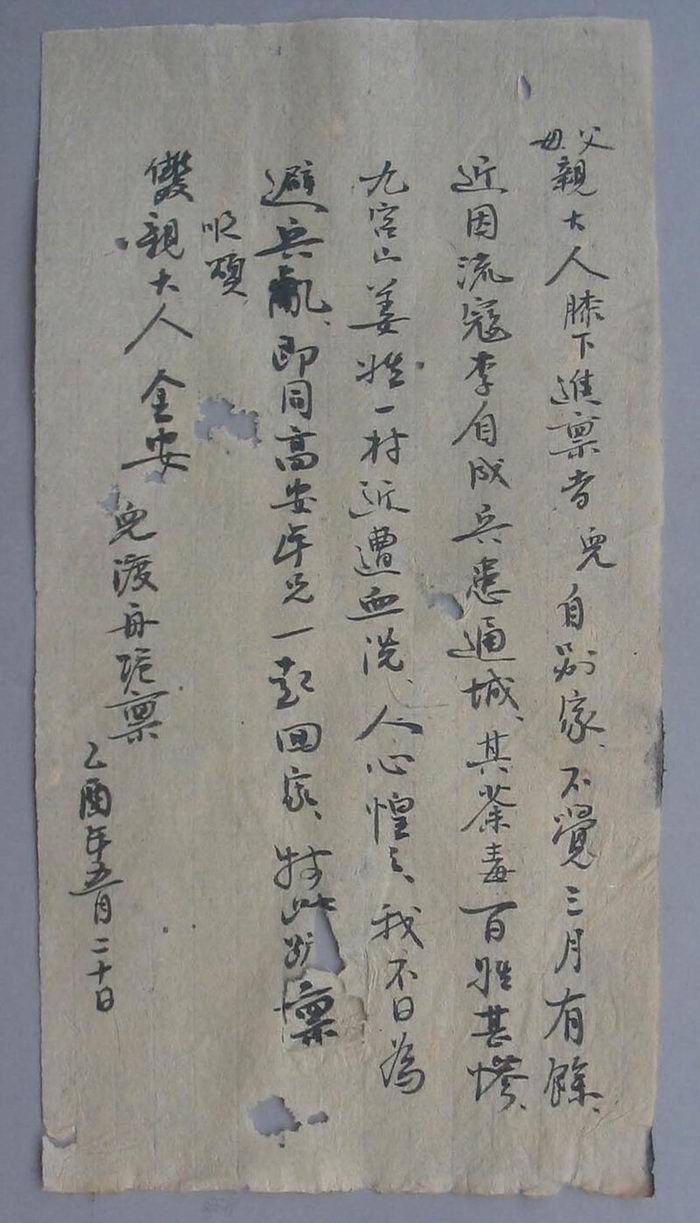 父母親大人膝下進禀者兒自别家、不覺三月有餘、
近因流寇李自成兵患逼城、其荼毒百姓甚惨、
九宫山姜姓一村近遭血洗、人心惶々、我不日為
避兵亂、即同高安年兄一起回家、特此跪禀
順頌
雙親大人 金安
兒渡舟跪禀
乙酉年五月二十日